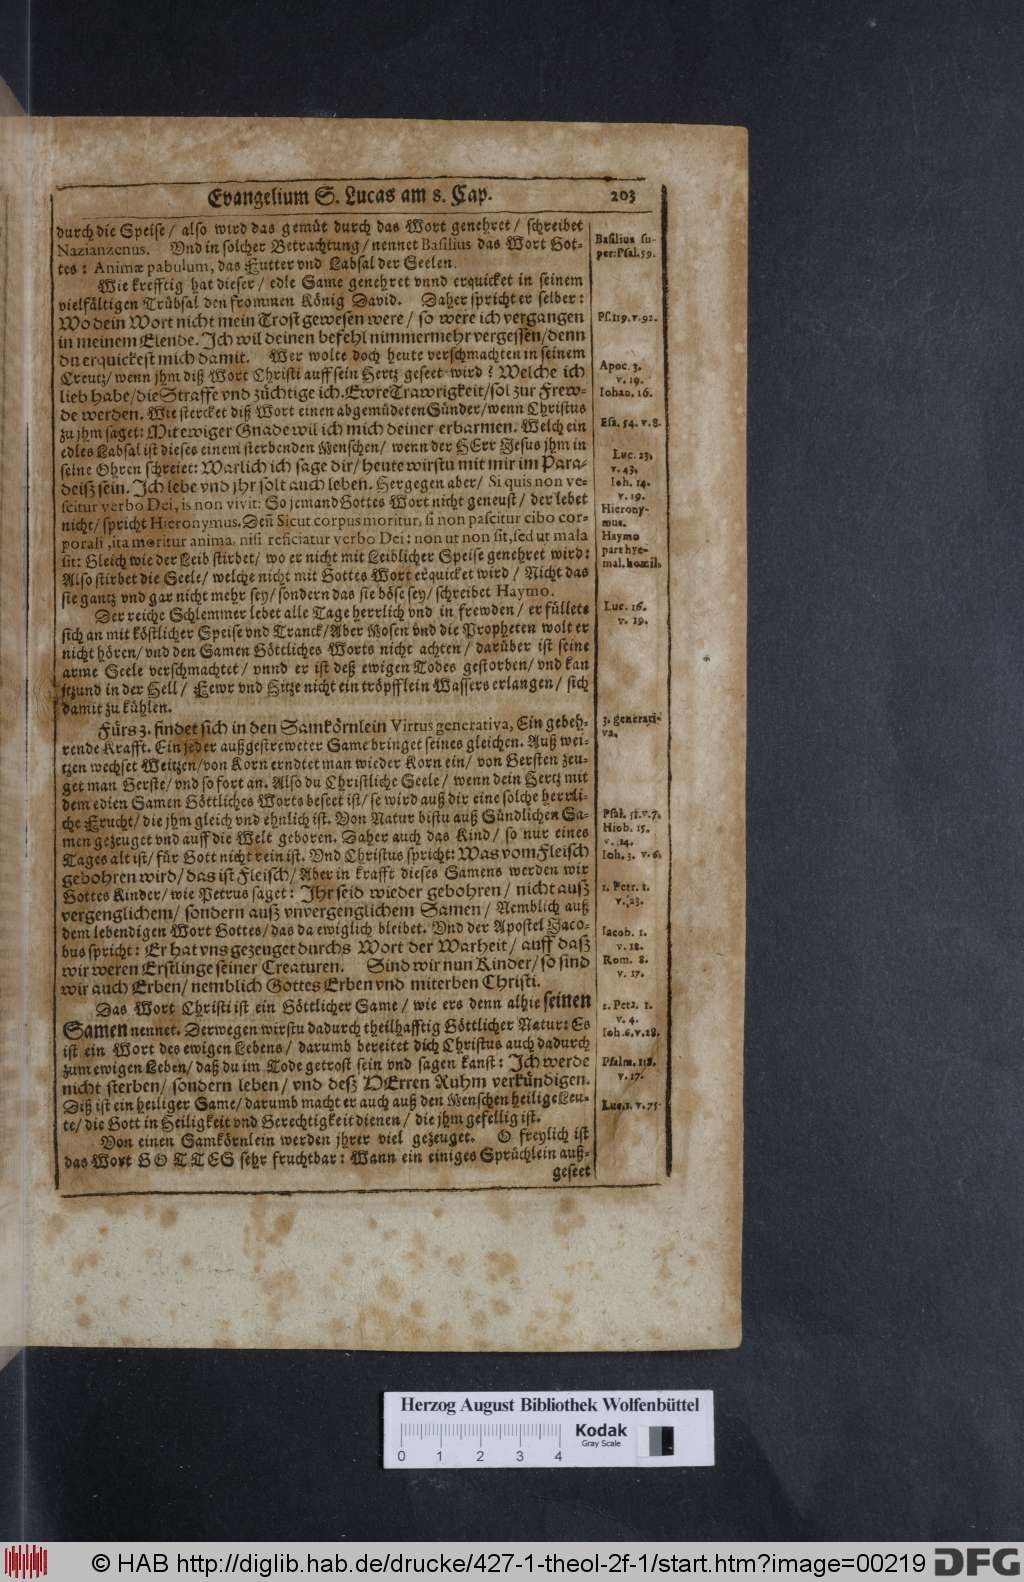 Evangelium S. Lucas am 8. Cap. 203
durch die Speise / also wird das gemüt durch das Wort genehret / schreibet
Nazianzenus. Vnd in solcher Betrachtung / nennet Basilius das Wort Got-
tes: Animæ pabulum, das Futter vnd Labsal der Seelen.
Wie krefftig hat dieser / edle Same genehret vnnd erquicket in seinem
vielfältigen Trübsal den frommen König David. Daher spricht er selber:
Wo dein Wort nicht mein Trost gewesen were / so were ich vergangen
in meinem Elende. Ich wil deinen befehl nimmermehr vergessen / denn
du erquickest mich damit. Wer wolte doch heute verschmachten in seinem
Creutz / wenn jhm diß Wort Christi auff sein Hertz geseet wird? Welche ich
lieb habe / die Straffe vnd züchtige ich. Ewre Trawrigkeit / sol zur Frew-
de werden. Wie stercket diß Wort einen abgemüdeten Sünder / wenn Christus
zu jhm saget: Mit ewiger Gnade wil ich mich deiner erbarmen. Welch ein
edles Labsal ist dieses einem sterbenden Menschen / wenn der HErr Jesus jhm in
seine Ohren schreiet: Warlich ich sage dir / heute wirstu mit mir im Para-
deisz sein. Ich lebe vnd jhr solt auch leben. Hergegen aber / Si quis non ve-
scitur verbo Dei, is non vivit: So jemand Gottes Wort nicht geneust / der lebet
nicht / spricht Hieronymus. Deñ Sicut corpus moritur, si non pascitur cibo cor-
porali, ita moritur anima, nisi reficiatur verbo Dei: non ut non sit, sed ut mala
sit: Gleich wie der Leib stirbet / wo er nicht mit Leiblicher Speise genehret wird:
Also stirbet die Seele / welche nicht mit Gottes Wort erquicket wird / Nicht das
sie gantz vnd gar nicht mehr sey / sondern das sie böse sey / schreibet Haymo.
Der reiche Schlemmer lebet alle Tage herrlich vnd in frewden / er füllets
sich an mit köstlicher Speise vnd Tranck / Aber Mosen vnd die Propheten wolt er
nicht hören / vnd den Samen Göttliches Worts nicht achten / darüber ist seine
arme Seele verschmachtet / vnnd er ist deß ewigen Todes gestorben / vnd kan
jtzund in der Hell / Fewr vnd Hitze nicht ein tröpfflein Wassers erlangen / sich
damit zu kühlen.
Fürs 3. findet sich in den Samkörnlein Virtus generativa, Ein gebeh-
rende Krafft. Ein jeder außgestreweter Same bringet seines gleichen. Auß wei-
tzen wechset Weitzen / von Korn erndtet man wieder Korn ein / von Gersten zeu-
get man Gerste / vnd so fort an. Also du Christliche Seele / wenn dein Hertz mit
dem edlen Samen Göttliches Worts beseet ist / so wird auß dir eine solche herrli-
che Frucht / die jhm gleich vnd ehnlich ist. Von Natur bistu auß Sündlichen Sa-
men gezeuget vnd auff die Welt geboren. Daher auch das Kind / so nur eines
Tages alt ist / für Gott nicht rein ist. Vnd Christus spricht: Was vom Fleisch
gebohren wird / das ist Fleisch / Aber in krafft dieses Samens werden wir
Gottes Kinder / wie Petrus saget: Ihr seid wieder gebohren / nicht ausz
vergenglichem / sondern ausz vnvergenglichem Samen / Nemblich auß
dem lebendigen Wort Gottes / das da ewiglich bleibet. Vnd der Apostel Jaco-
bus spricht: Er hat vns gezeuget durchs Wort der Warheit / auff dasz
wir weren Erstlinge seiner Creaturen. Sind wir nun Kinder / so sind
wir auch Erben / nemblich Gottes Erben vnd miterben Christi.
Das Wort Christi ist ein Göttlicher Same / wie ers denn alhie seinen
Samen nennet. Derwegen wirstu dadurch theilhafftig Göttlicher Natur: Es
ist ein Wort des ewigen Lebens / darumb bereitet dich Christus auch dadurch
zum ewigen Leben / daß du im Tode getrost sein vnd sagen kanst: Ich werde
nicht sterben / sondern leben / vnd desz HErren Ruhm verkündigen.
Diß ist ein heiliger Same / darumb macht er auch auß den Menschen heilige Leu-
te / die Gott in Heiligkeit vnd Gerechtigkeit dienen / die jhm gefellig ist.
Von einen Samkörnlein werden jhrer viel gezeuget. O freylich ist
das Wort GOTTES sehr fruchtbar: Wann ein einiges Sprüchlein auß-
geseet
Basilius su-
per: Psal. 59.
Ps. 119. v. 92.
Apoc. 3.
v. 19.
Iohan. 16.
Esa. 54. v. 8.
Luc. 23.
v. 43.
Ioh. 14.
v. 19.
Hierony-
mus.
Haymo
part hye-
mal. homil.
Luc. 16.
v. 19.
3. generati-
va.
Psal. 51. v. 7.
Hiob. 15.
v. 14.
Ioh. 3. v. 6.
1. Petr. 1.
v. 23.
Iacob. 1.
v. 18.
Rom. 8.
v. 17.
2. Petr. 1.
v. 4.
Ioh. 6. v. 28.
Psalm. 118.
v. 17.
Luc. 1. v. 75.
Herzog August Bibliothek Wolfenbüttel
Kodak
Gray Scale
0 1 2 3 4
© HAB http://diglib.hab.de/drucke/427-1-theol-2f-1/start.htm?image=00219 DFG